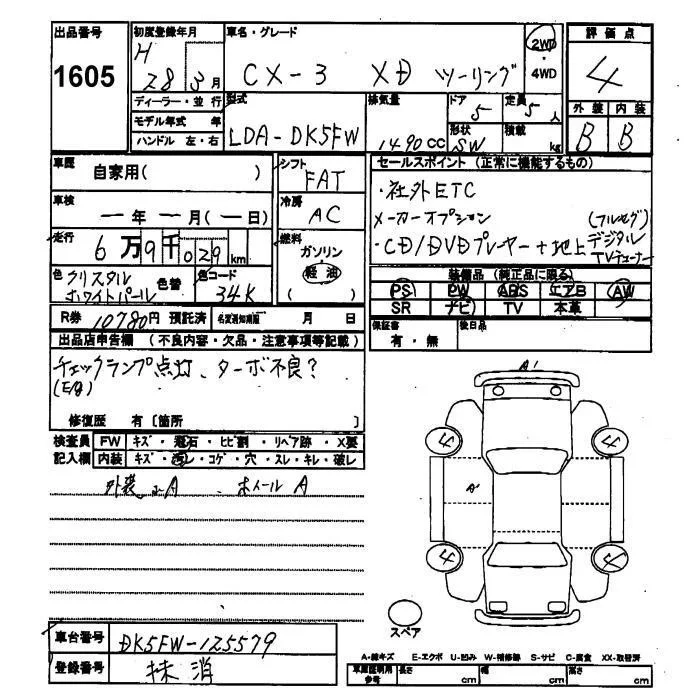 出品番号 初度登録年月 車名・グレード 評価点
1605 H 28年 3月 CX-3 XD ツーリング 2WD・4WD 4
ディーラー・並行 型式 排気量 ドア 5 定員 5人 外装 内装
モデル年式 年 LDA-DK5FW 1490cc 形状 SW 積載 kg B B
ハンドル 左・右
車歴 自家用( ) シフト FAT セールスポイント (正常に機能するもの)
車検 ー年ー月(ー日) 冷房 AC ・社外ETC
走行 6万9千029km 燃料 ガソリン 軽油 ( ) メーカーオプション (フルセグ)
・CD/DVDプレーヤー+地上デジタルTVチューナー
色 クリスタルホワイトパール 色替 色コード 34K 装備品 (純正品に限る)
PS PW ABS エアB AW
R券 10780円 預託済 名変通知期限 月 日 SR ナビ TV 本革
出品店申告欄 (不良内容・欠品・注意事項等記載) 保証書 有・無 後日品
チェックランプ点灯、ターボ不良?
(E/g)
修復歴 有〔箇所 〕
検査員 FW キズ・飛石・ヒビ割・リペア跡・X要
記入欄 内装 キズ・汚レ・コゲ・穴・スレ・キレ・破レ
外装 A ホイール A
A'
4 4
A'
4 4
スペア
車台番号 DK5FW-125579
登録番号 抹消
A-線キズ E-エクボ U-凹み W-補修跡 S-サビ C-腐食 XX-取替済
車庫証明用参考 長さ cm 幅 cm 高さ cm